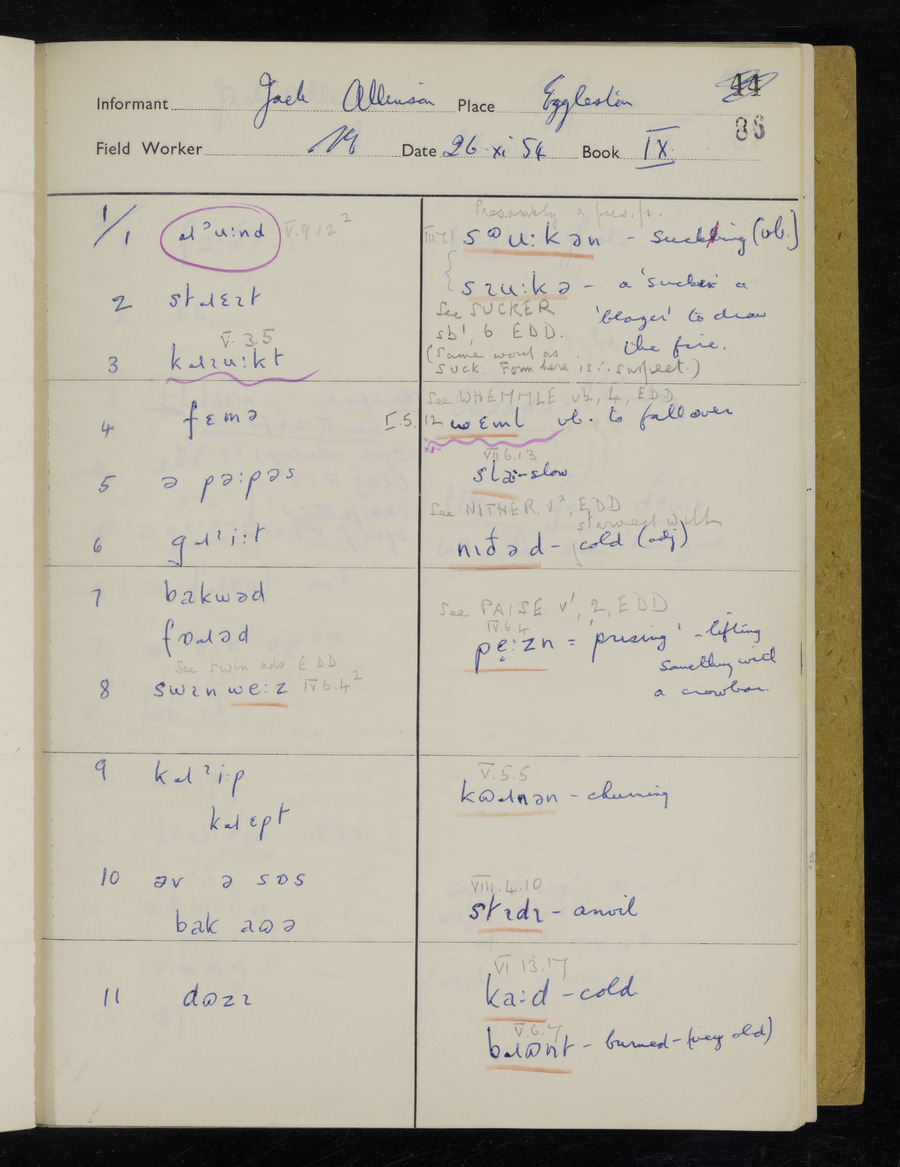 Informant Jack Allinson Place Eggleston 44
86
Field Worker Date 26 xi 54 Book IX
1/1 ɹᵊu:nd V.9.12²
2 stɹɛɪt
V. 3.5
3 kɹɪu:kt
4 fɛmə
5 ə pə:pəs
6 gɹᶦi:t
7 bakwəd
fɒɹəd
See swin adv. EDD
8 swɪnwe:z IV 6.4²
9 kɹᶦi:p
kɹɛpt
10 əv ə sɒs
bak aʊə
11 dʊzɪ
III.7.1 sᵊu:kən – sucking (vb.)
sɪu:kə – a 'sucker' a
'blazer' to draw
the fire.
See SUCKER
sb¹, 6 EDD.
(Same word as
suck. Form here is ∴ suspect.)
See WHEMMLE vb, 4, EDD
I.5.12 wɛml vb. to fall over
VII 6.13
slæ: – slow
See NITHER v², EDD
starved with
nɪðəd – cold (adj)
See PAISE v¹, 2, EDD
IV.6.4
pe:zn = 'prising' – lifting
something with
a crowbar.
V.5.5
kʊɹnən – churning
VIII.4.10
stɪdɪ – anvil
VI.13.17
ka:d – cold
V.6.7
bɹʊnt – burned – (very old)